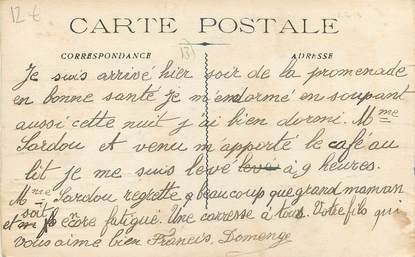 12 €
CARTE POSTALE
CORRESPONDANCE
13
ADRESSE
Je suis arrivé hier soir de la promenade
en bonne santé je m'endormé en soupant
aussi cette nuit j'ai bien dormi. Mme
Sardou et venu m'apporté le café au
lit je me suis levé levé à 9 heures.
Mme Sardou regrette beaucoup que grand maman
soit
et encore fatigué. Une caresse à tous. Votre fils qui
vous aime bien Francis Domenge